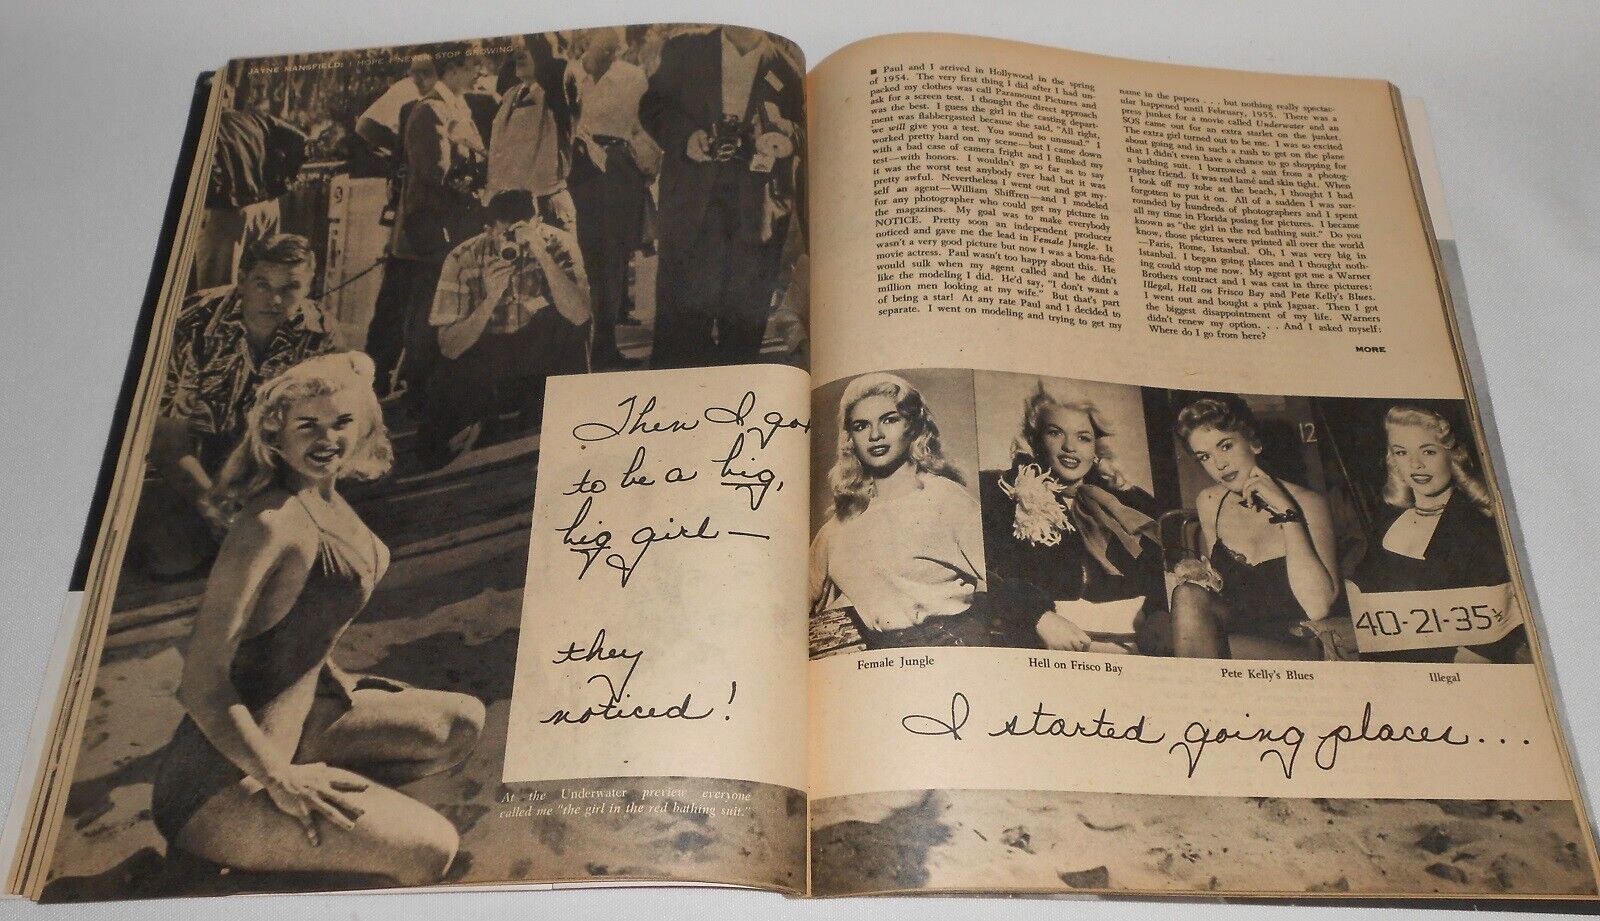 JAYNE MANSFIELD: I HOPE I NEVER STOP GROWING
Then I got
to be a big,
big girl—
they
noticed!
At the Underwater preview everyone
called me "the girl in the red bathing suit."
■ Paul and I arrived in Hollywood in the spring
of 1954. The very first thing I did after I had un-
packed my clothes was call Paramount Pictures and
ask for a screen test. I thought the direct approach
was the best. I guess the girl in the casting depart-
ment was flabbergasted because she said, "All right,
we will give you a test. You sound so unusual." I
worked pretty hard on my scene—but I came down
with a bad case of camera fright and I flunked my
test—with honors. I wouldn't go so far as to say
it was the worst test anybody ever had but it was
pretty awful. Nevertheless I went out and got my-
self an agent—William Shiffren—and I modeled
for any photographer who could get my picture in
the magazines. My goal was to make everybody
NOTICE. Pretty soon an independent producer
noticed and gave me the lead in Female Jungle. It
wasn't a very good picture but now I was a bona-fide
movie actress. Paul wasn't too happy about this. He
would sulk when my agent called and he didn't
like the modeling I did. He'd say, "I don't want a
million men looking at my wife." But that's part
of being a star! At any rate Paul and I decided to
separate. I went on modeling and trying to get my
name in the papers . . . but nothing really spectac-
ular happened until February, 1955. There was a
press junket for a movie called Underwater and an
SOS came out for an extra starlet on the junket.
The extra girl turned out to be me. I was so excited
about going and in such a rush to get on the plane
that I didn't even have a chance to go shopping for
a bathing suit. I borrowed a suit from a photog-
rapher friend. It was red lamé and skin tight. When
I took off my robe at the beach, I thought I had
forgotten to put it on. All of a sudden I was sur-
rounded by hundreds of photographers and I spent
all my time in Florida posing for pictures. I became
known as "the girl in the red bathing suit." Do you
know, those pictures were printed all over the world
—Paris, Rome, Istanbul. Oh, I was very big in
Istanbul. I began going places and I thought noth-
ing could stop me now. My agent got me a Warner
Brothers contract and I was cast in three pictures:
Illegal, Hell on Frisco Bay and Pete Kelly's Blues.
I went out and bought a pink Jaguar. Then I got
the biggest disappointment of my life. Warners
didn't renew my option. . . And I asked myself:
Where do I go from here?
MORE
12
40-21-35½
Female Jungle
Hell on Frisco Bay
Pete Kelly's Blues
Illegal
I started going places...